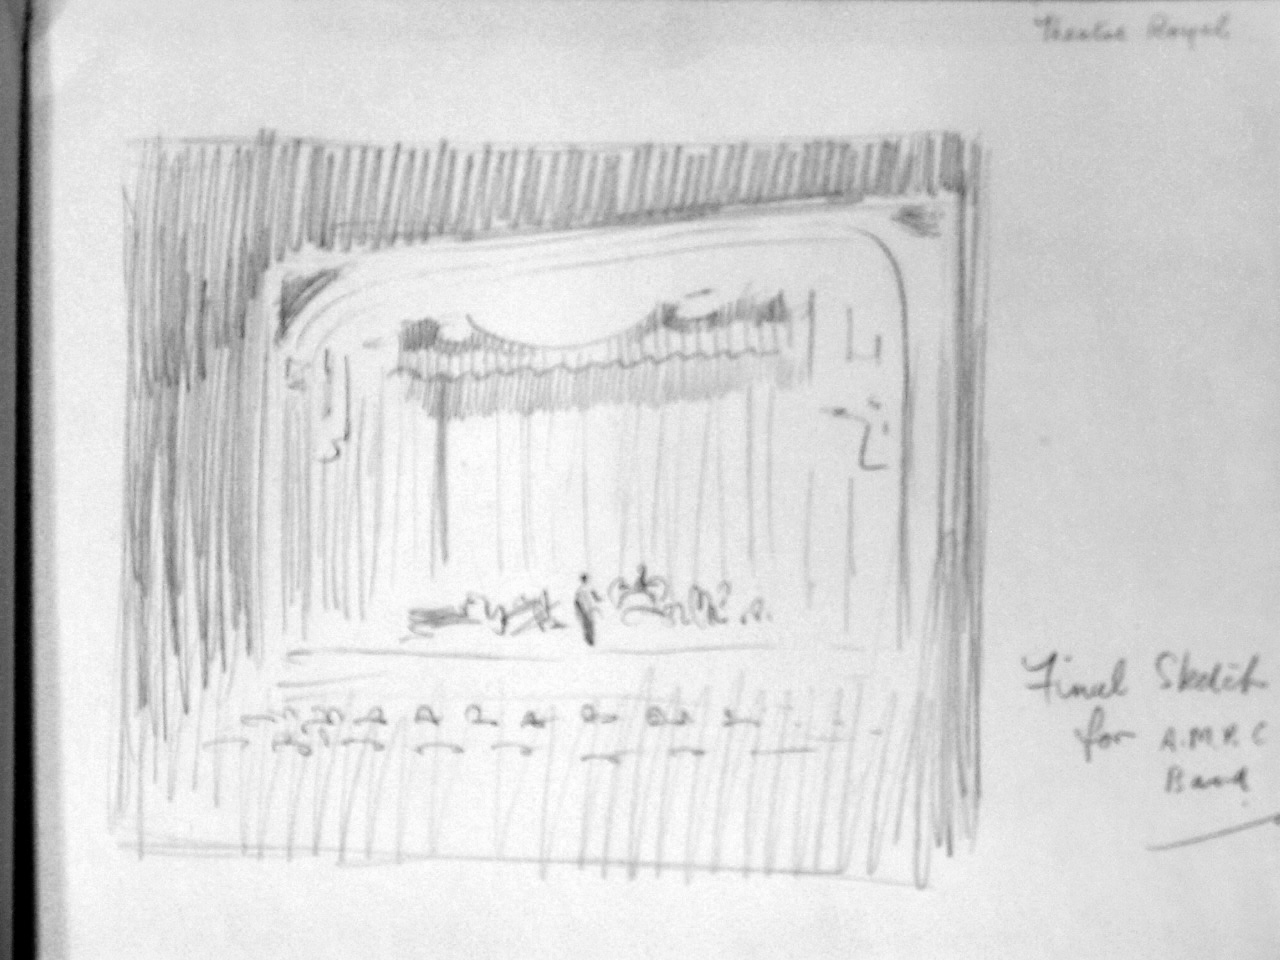 Theatre Royal
Final Sketch
for A.M.P.C
Band